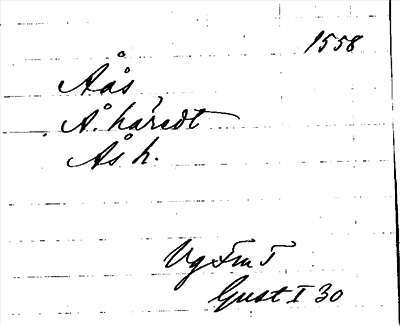 1558
Aås
A. håredt
Ås h.
Vg Fm T
Gust I 30